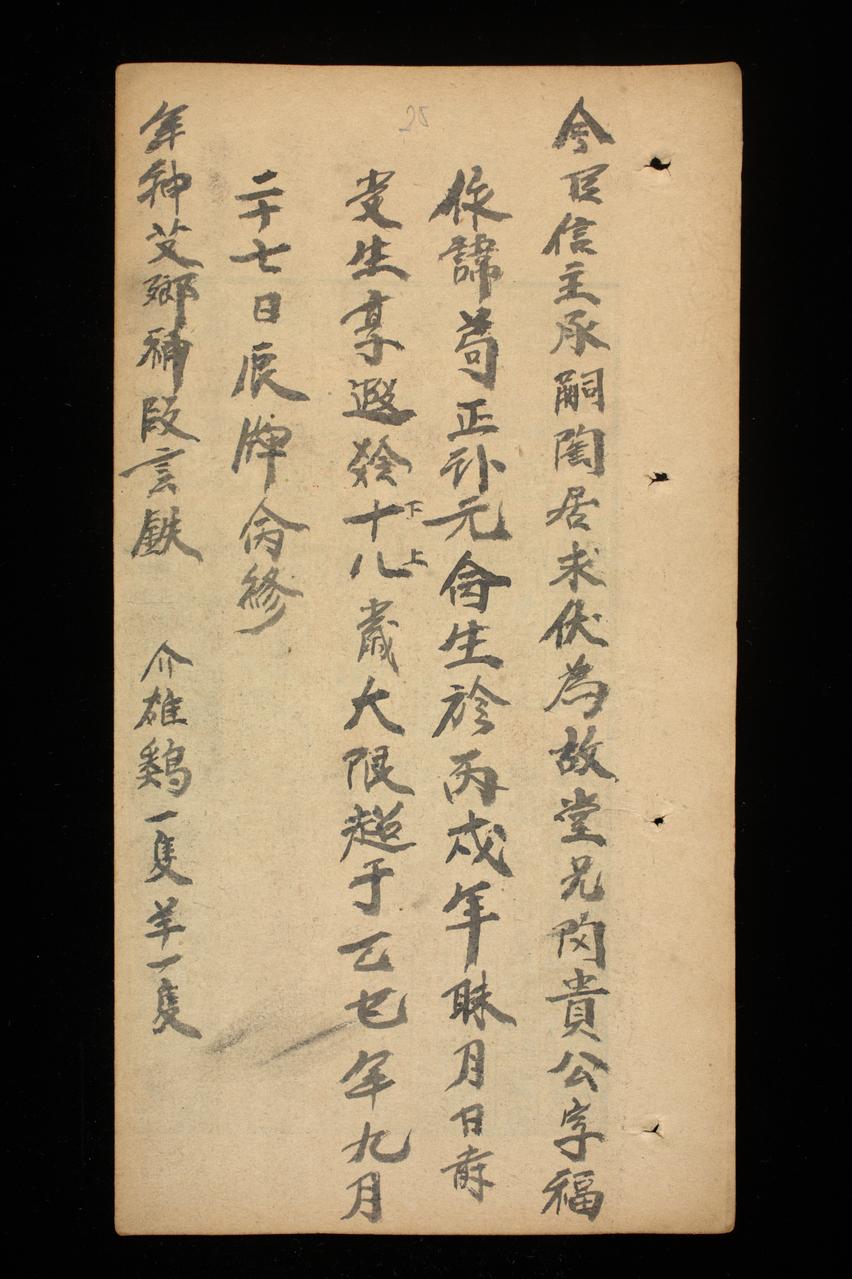 今㠯信主承嗣陶居求伏為故堂兄陶貴公字福
依諱苟正卦元命生於丙戌年昧月日辤
受生享遐齡十八下上歲大限超于乙巳年九月
二十七日辰牌命終
年神艾鄉補段言鉄 介雄鷄一隻羊一隻
25